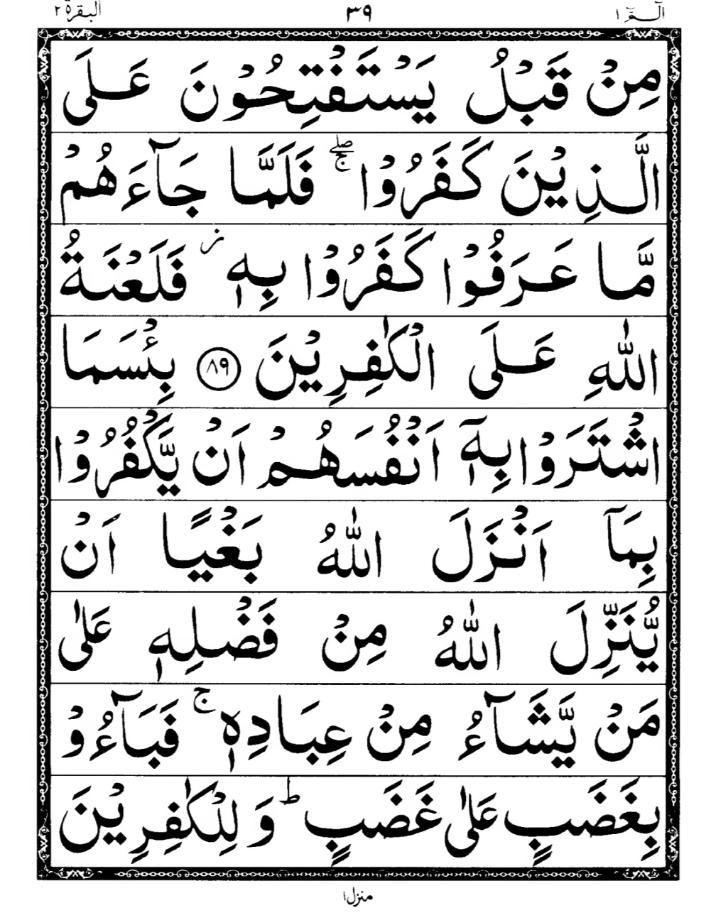 الٓمّٓ ۱ ۳۹ البقرة ۲
مِنْ قَبْلُ يَسْتَفْتِحُوْنَ عَلَى
الَّذِيْنَ كَفَرُوْا ۚۖ فَلَمَّا جَآءَهُمْ
مَّا عَرَفُوْا كَفَرُوْا بِهٖ ز فَلَعْنَةُ
اللّٰهِ عَلَى الْكٰفِرِيْنَ ﴿۸۹﴾ بِئْسَمَا
اشْتَرَوْا بِهٖٓ اَنْفُسَهُمْ اَنْ يَّكْفُرُوْا
بِمَآ اَنْزَلَ اللّٰهُ بَغْيًا اَنْ
يُّنَزِّلَ اللّٰهُ مِنْ فَضْلِهٖ عَلٰى
مَنْ يَّشَآءُ مِنْ عِبَادِهٖ ۚ فَبَآءُوْ
بِغَضَبٍ عَلٰى غَضَبٍ ؕ وَ لِلْكٰفِرِيْنَ
منزل ۱